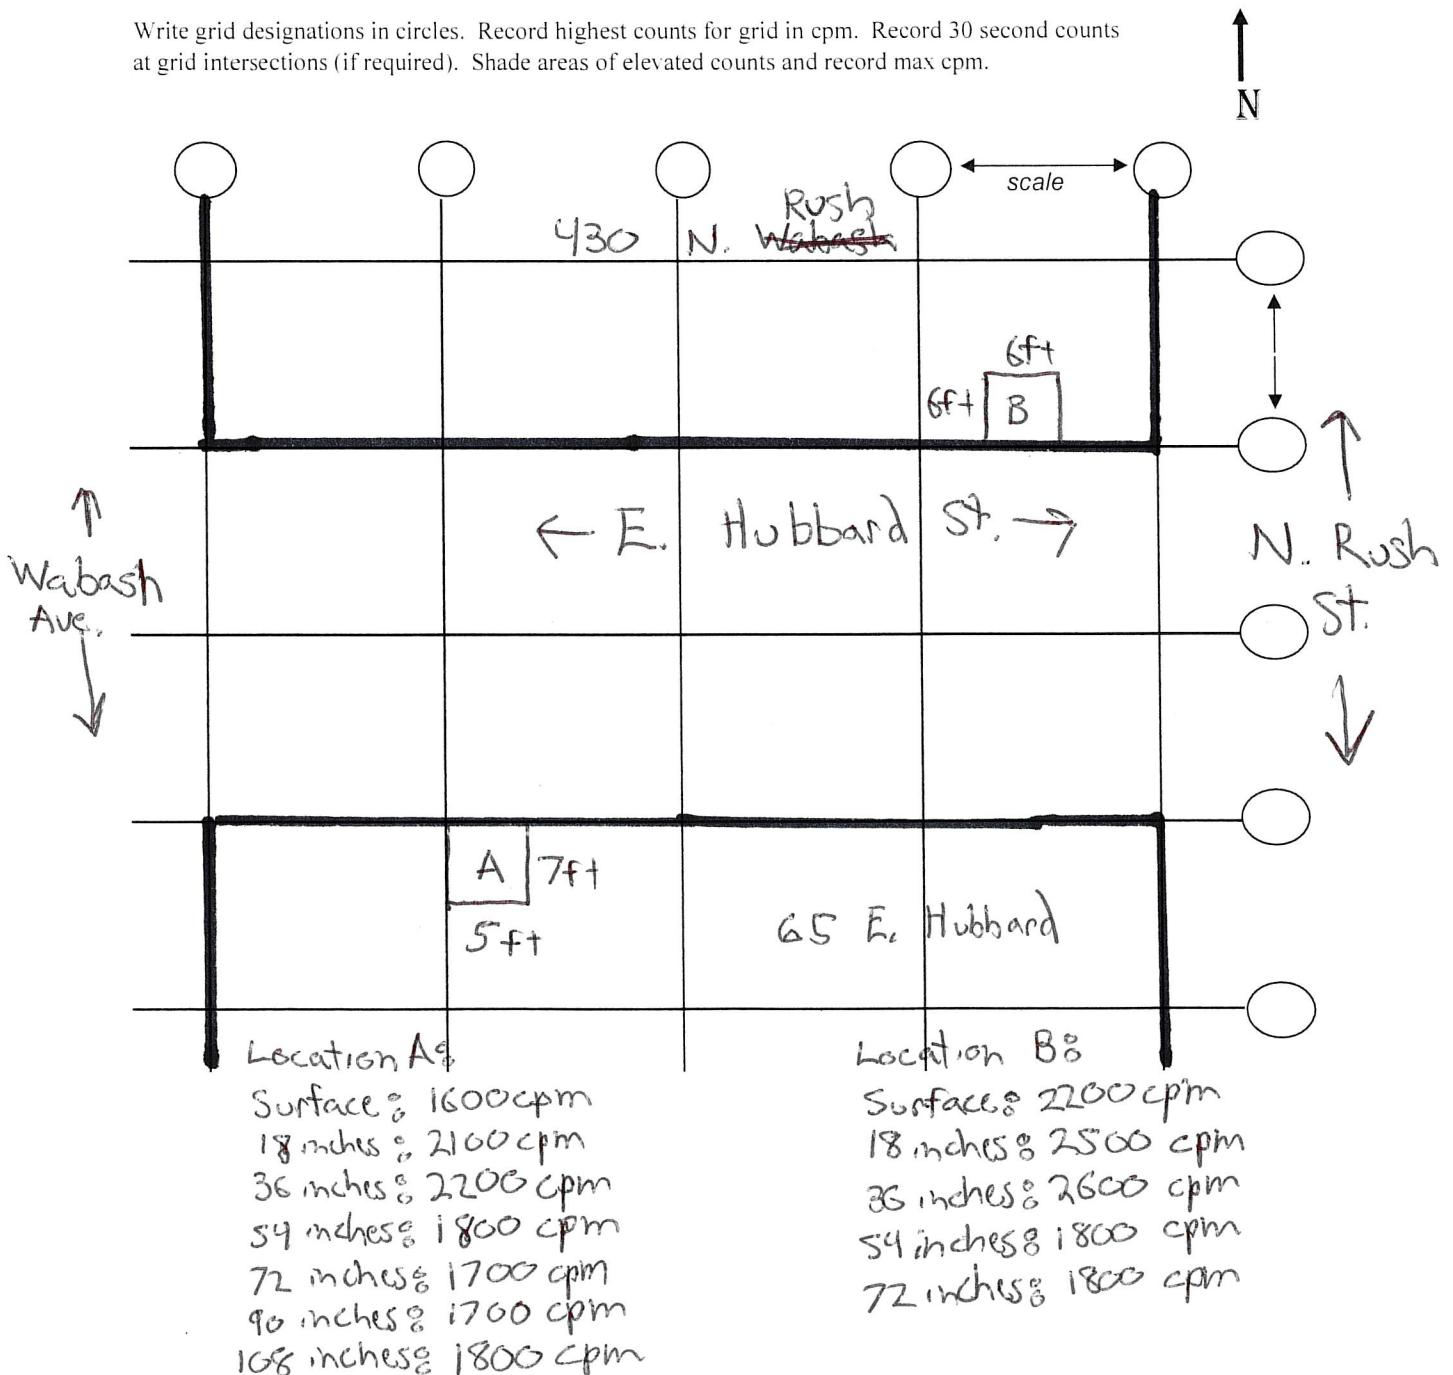 Write grid designations in circles. Record highest counts for grid in cpm. Record 30 second counts
at grid intersections (if required). Shade areas of elevated counts and record max cpm.
N
scale
Rush
430 N. Wabash
6ft
6ft B
← E. Hubbard St. →
Wabash
Ave.
N. Rush
St.
A 7ft
5ft
65 E. Hubbard
Location A:
Surface: 1600cpm
18 inches: 2100 cpm
36 inches: 2200 cpm
54 inches: 1800 cpm
72 inches: 1700 cpm
90 inches: 1700 cpm
108 inches: 1800 cpm
Location B:
Surface: 2200cpm
18 inches: 2500 cpm
36 inches: 2600 cpm
54 inches: 1800 cpm
72 inches: 1800 cpm